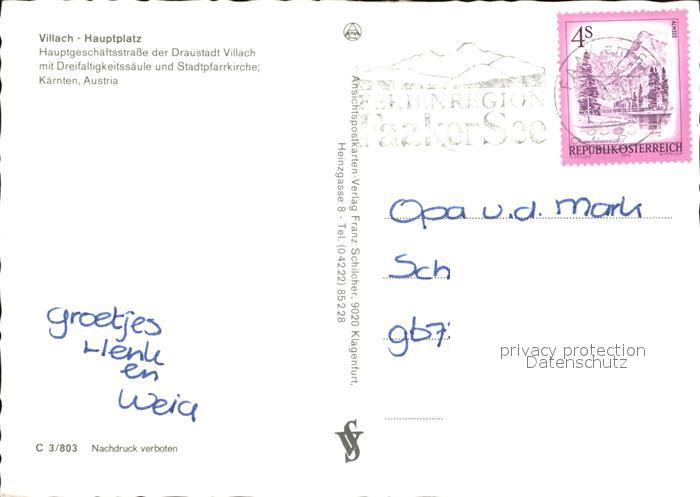 Villach - Hauptplatz
Hauptgeschäftsstraße der Draustadt Villach
mit Dreifaltigkeitssäule und Stadtpfarrkirche;
Kärnten, Austria
groetjes
Henk
en
C 3/803 Nachdruck verboten
Ansichtspostkarten-Verlag Franz Schilcher, 9020 Klagenfurt,
Heinzgasse 8 - Tel. (04222) 85228
FERIENREGION
Faaker See
4S
ALMSEE
REPUBLIK ÖSTERREICH
Opa v.d. Mark
Sch
privacy protection
Datenschutz